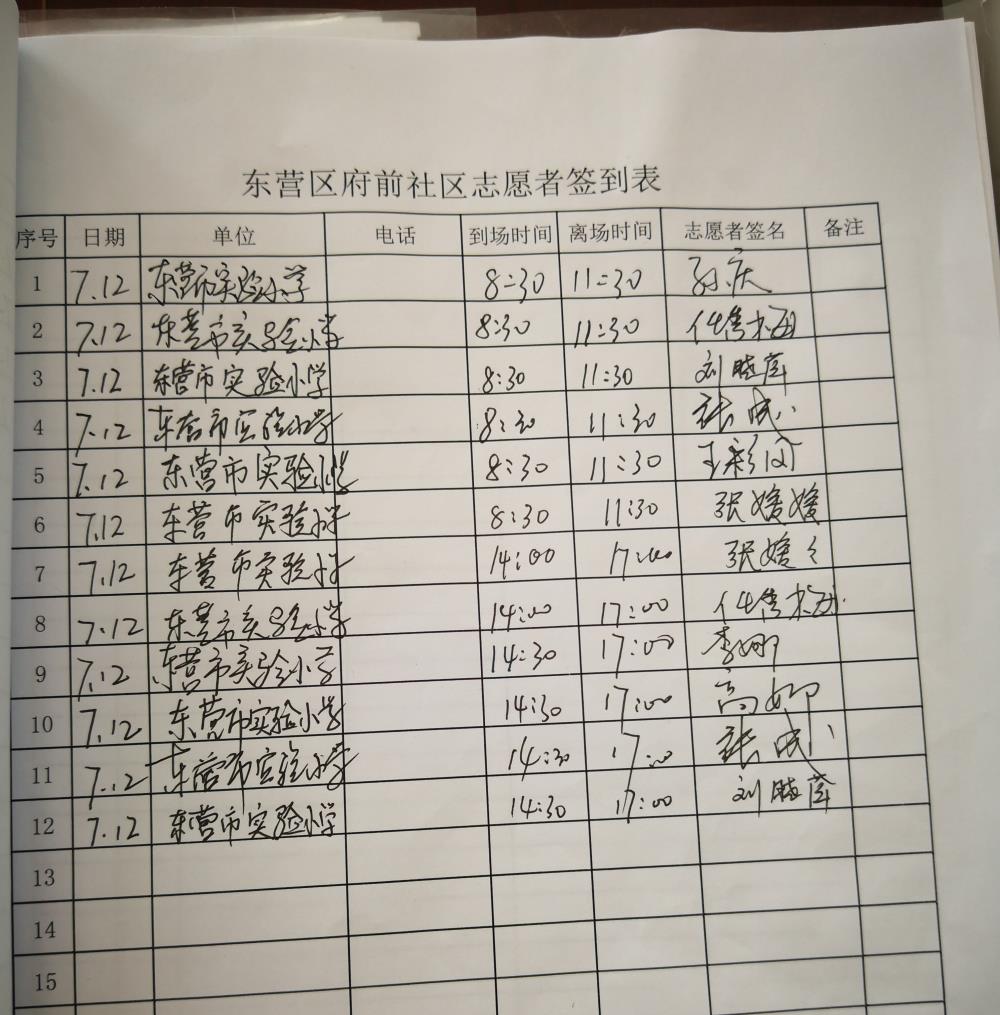 东营区府前社区志愿者签到表
序号 日期 单位 电话 到场时间 离场时间 志愿者签名 备注
1 7.12 东营市实验小学 8:30 11:30 孙庆
2 7.12 东营市实验小学 8:30 11:30
3 7.12 东营市实验小学 8:30 11:30 刘晓萍
4 7.12 东营市实验小学 8:30 11:30 张
5 7.12 东营市实验小学 8:30 11:30 王彩
6 7.12 东营市实验小学 8:30 11:30 张媛媛
7 7.12 东营市实验小学 14:00 17:00 张媛々
8 7.12 东营市实验小学 14:00 17:00
9 7.12 东营市实验小学 14:30 17:00 李娜
10 7.12 东营市实验小学 14:30 17:00 高
11 7.12 东营市实验小学 14:30 17:00 张
12 7.12 东营市实验小学 14:30 17:00 刘晓萍
13
14
15